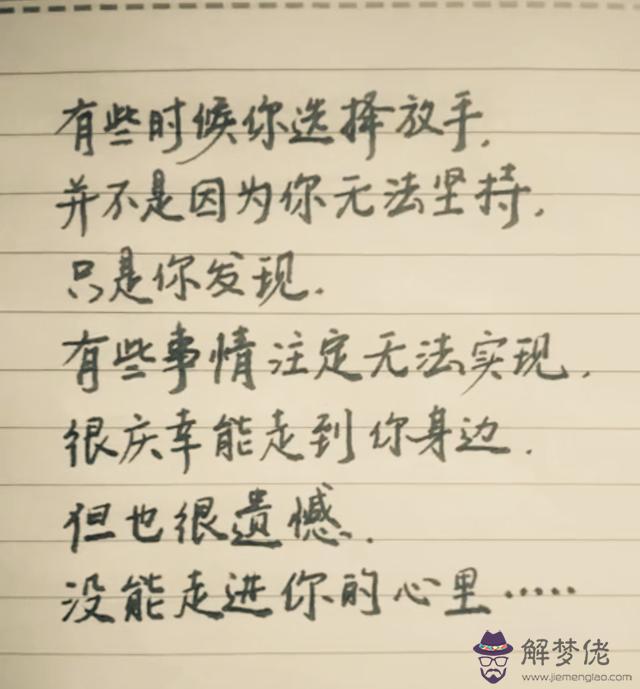 有些时候你选择放手,
并不是因为你无法坚持,
只是你发现.
有些事情注定无法实现.
很庆幸能走到你身边.
但也很遗憾.
没能走进你的心里·····
解梦佬
www.jiemenglao.com